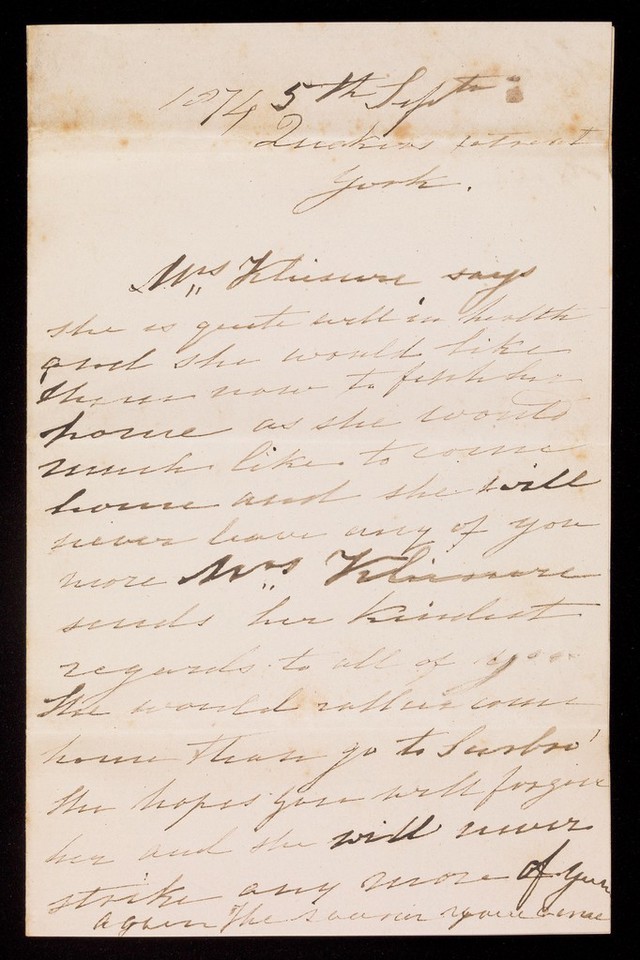 1874 5th Septr
Quakers retreat
York.
Mrs says
she is quite well in health
and she would like
them now to fetch her
home as she would
much like to come
home and she will
never leave any of you
more Mrs
sends her kindest
regards to all of you
She would rather come
home than go to Scarbro'
She hopes you will forgive
her and she will never
strike any more of you
again The sooner you come